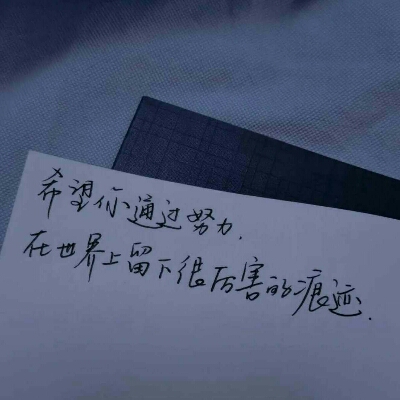 希望你通过努力.
在世界上留下很厉害的痕迹.